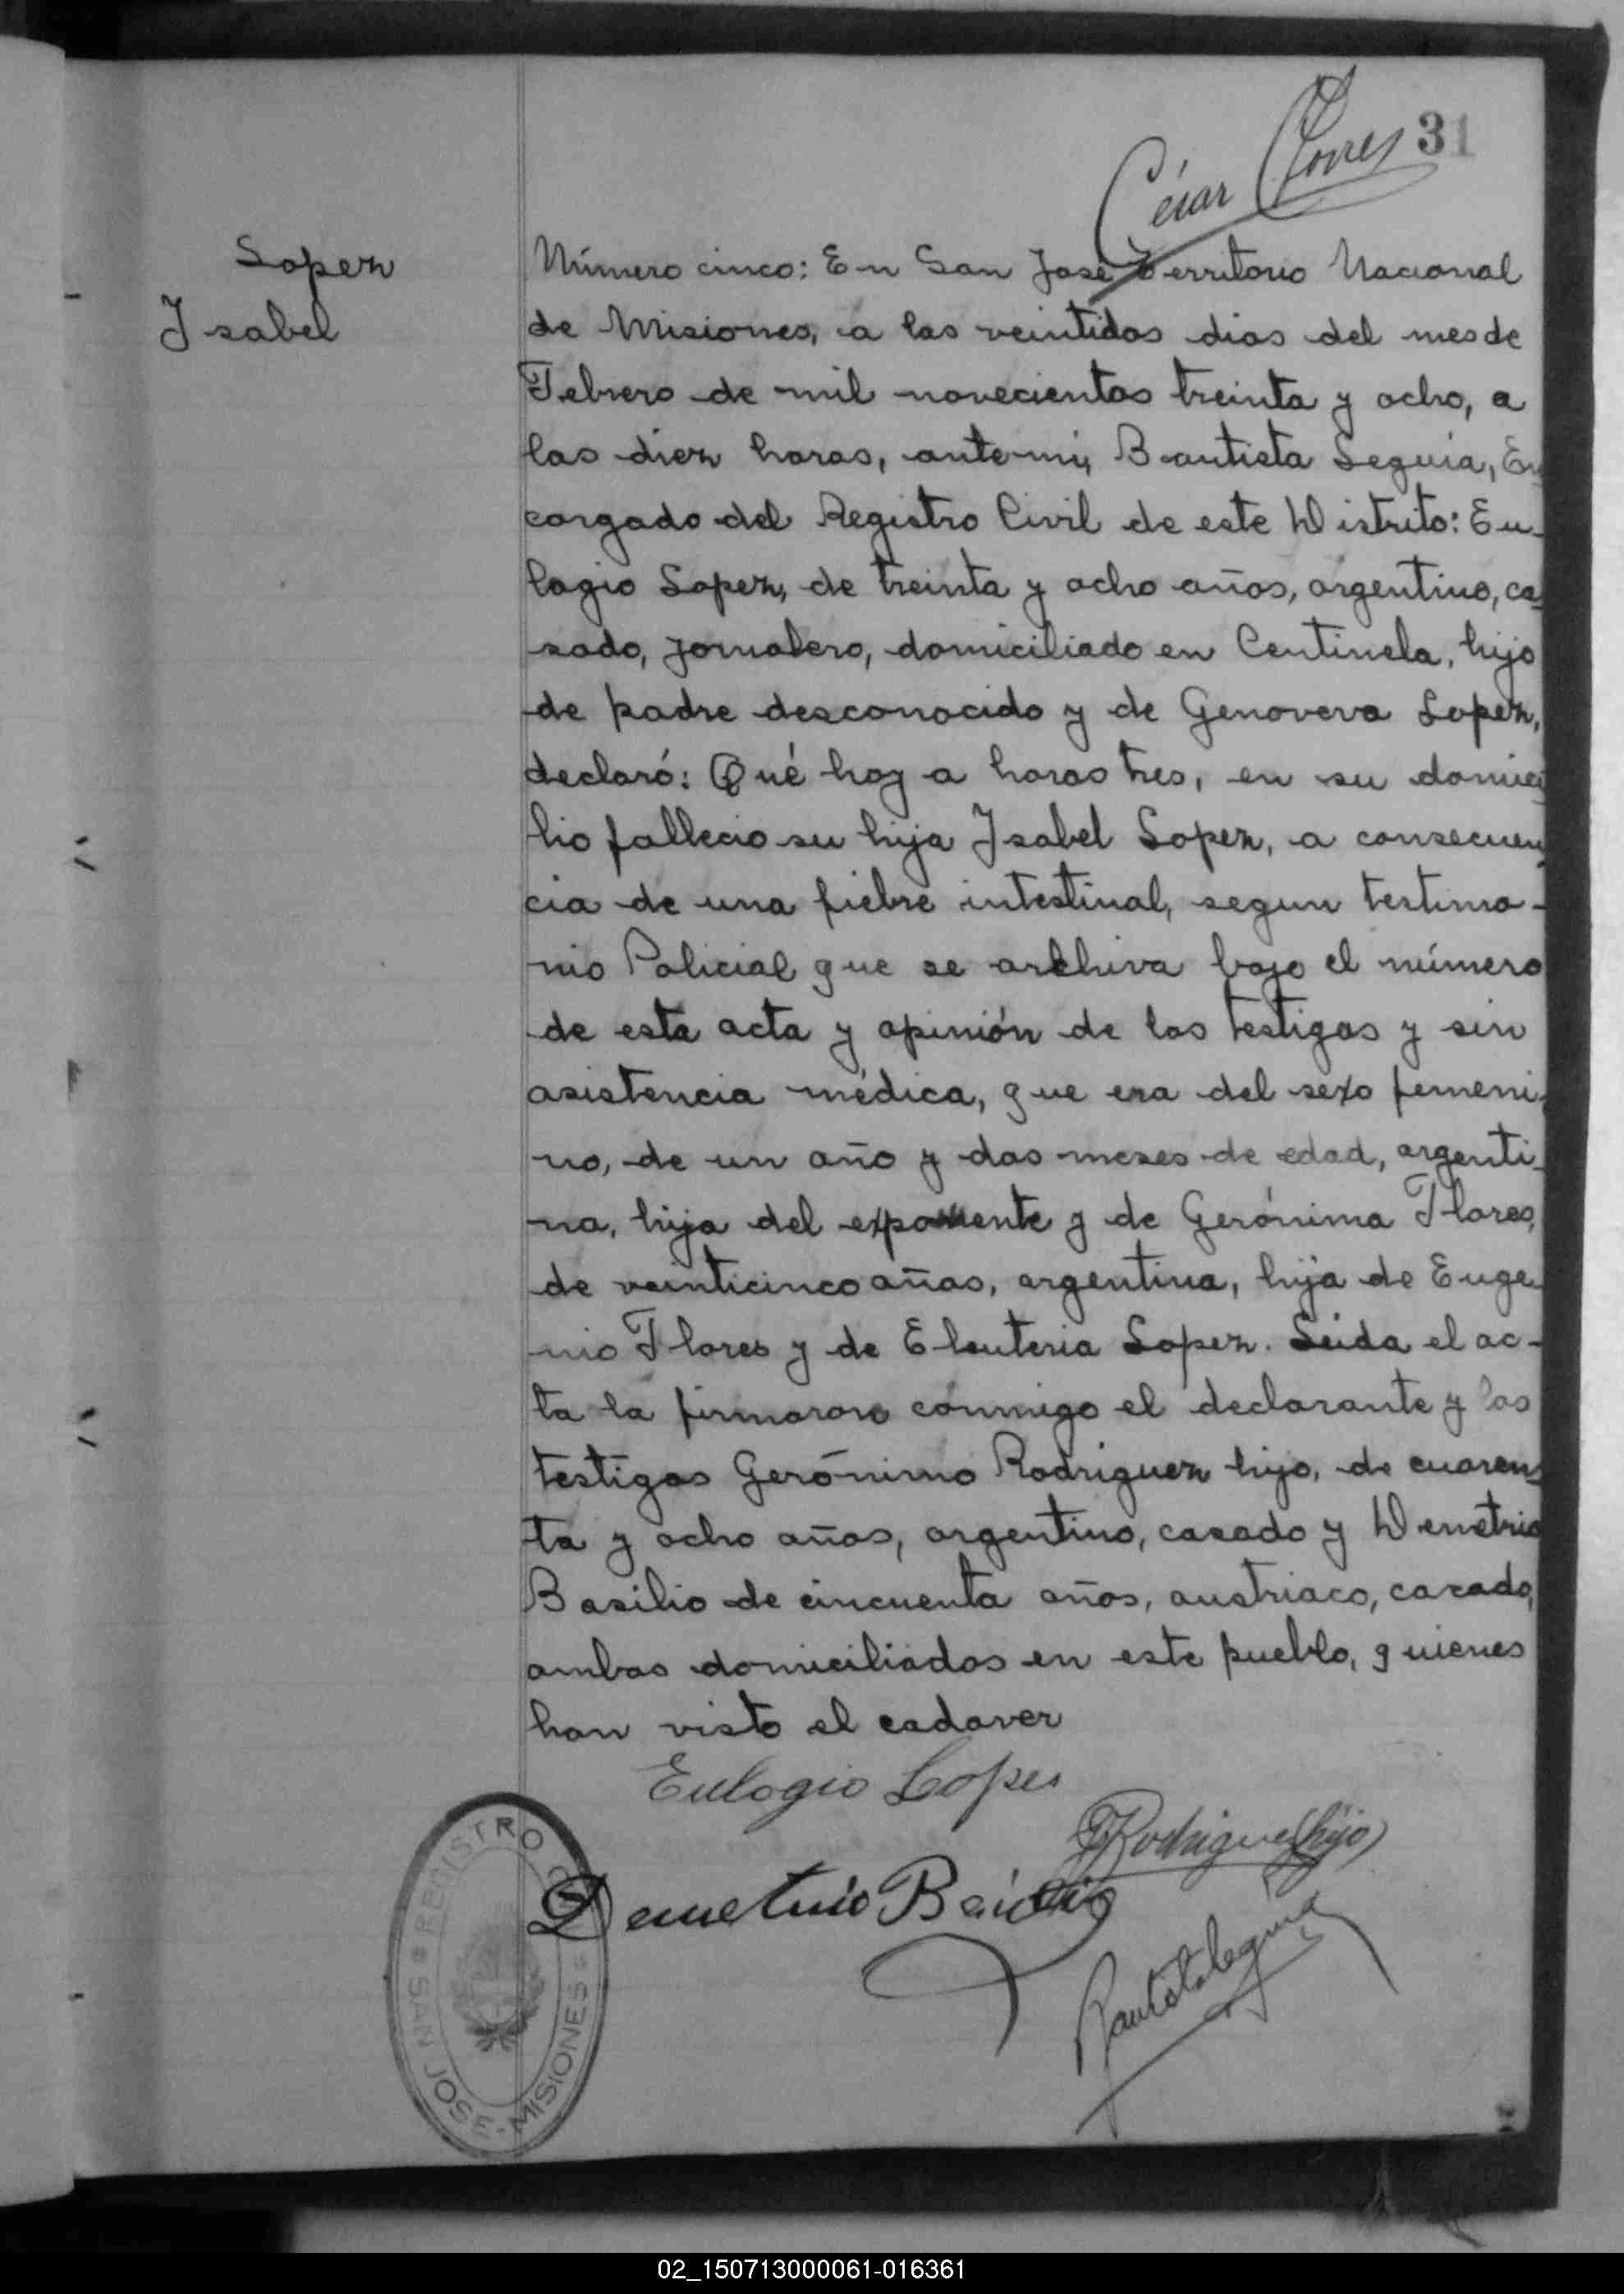 31
César Torres
Lopez
Isabel
Número cinco: En San José Territorio Nacional
de Misiones, a las veintidos dias del mes de
Febrero de mil novecientos treinta y ocho, a
las diez horas, ante mi, Bautista Seguia, En
cargado del Registro Civil de este Distrito: Eu-
logio Lopez, de treinta y ocho años, argentino, ca-
sado, jornalero, domiciliado en Centinela, hijo
de padre desconocido y de Genoveva Lopez,
declaró: Qué hoy a horas tres, en su domici
lio fallecio su hija Isabel Lopez, a consecuen
cia de una fiebre intestinal, segun testimo-
nio Policial que se archiva bajo el número
de esta acta y opinión de los testigos y sin
asistencia médica, que era del sexo femeni-
no, de un año y dos meses de edad, argenti-
na, hija del exponente y de Gerónima Flores,
de veinticinco años, argentina, hija de Euge
nio Flores y de Eleuteria Lopez. Leida el ac-
ta la firmaron conmigo el declarante y los
testigos Gerónimo Rodriguez hijo, de cuaren-
ta y ocho años, argentino, casado y Demetrio
Basilio de cincuenta años, austriaco, casado,
ambos domiciliados en este pueblo, quienes
han visto el cadaver
Eulogio Lopes
GRodriguez (hijo)
Demetrio
Bautista Seguia
REGISTRO
SAN JOSE - MISIONES
02_150713000061-016361